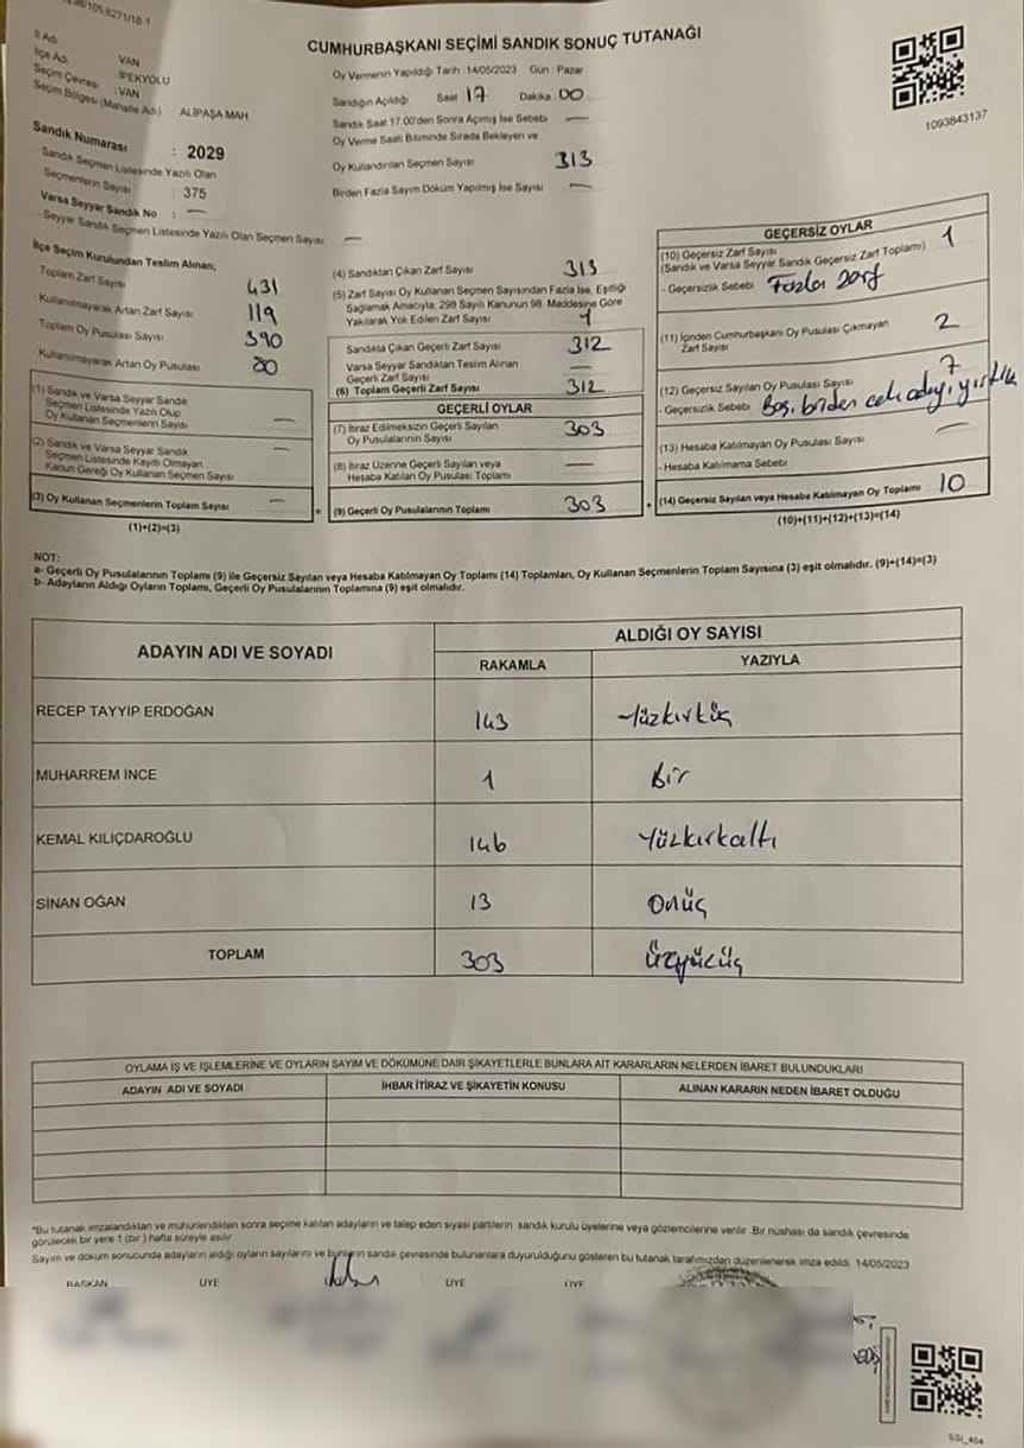 CUMHURBAŞKANI SEÇİMİ SANDIK SONUÇ TUTANAĞI
İl Adı VAN
İlçe Adı İPEKYOLU
Seçim Çevresi : VAN
Seçim Bölgesi (Mahalle Adı) ALİPAŞA MAH
Sandık Numarası : 2029
Sandık Seçmen Listesinde Yazılı Olan
Seçmenlerin Sayısı : 375
Varsa Seyyar Sandık No : —
- Seyyar Sandık Seçmen Listesinde Yazılı Olan Seçmen Sayısı —
Oy Vermenin Yapıldığı Tarih : 14/05/2023 Gün : Pazar
Sandığın Açıldığı Saat 17 Dakika : 00
Sandık Saat 17.00'den Sonra Açılmış İse Sebebi —
Oy Verme Saati Bitiminde Sırada Bekleyen ve
Oy Kullandırılan Seçmen Sayısı 313
Birden Fazla Sayım Döküm Yapılmış İse Sayısı —
1093843137
İlçe Seçim Kurulundan Teslim Alınan;
Toplam Zarf Sayısı 431
Kullanılmayarak Artan Zarf Sayısı 119
Toplam Oy Pusulası Sayısı 390
Kullanılmayarak Artan Oy Pusulası 80
(1) Sandık ve Varsa Seyyar Sandık
Seçmen Listesinde Yazılı Olup
Oy Kullanan Seçmenlerin Sayısı —
(2) Sandık ve Varsa Seyyar Sandık
Seçmen Listesinde Kayıtlı Olmayan
Kanun Gereği Oy Kullanan Seçmen Sayısı —
(3) Oy Kullanan Seçmenlerin Toplam Sayısı —
(1)+(2)=(3)
(4) Sandıktan Çıkan Zarf Sayısı 313
(5) Zarf Sayısı Oy Kullanan Seçmen Sayısından Fazla İse, Eşitliği
Sağlamak Amacıyla; 298 Sayılı Kanunun 98. Maddesine Göre
Yakılarak Yok Edilen Zarf Sayısı 1
Sandıkta Çıkan Geçerli Zarf Sayısı 312
Varsa Seyyar Sandıktan Teslim Alınan
Geçerli Zarf Sayısı —
(6) Toplam Geçerli Zarf Sayısı 312
GEÇERLİ OYLAR
(7) İtiraz Edilmeksizin Geçerli Sayılan
Oy Pusulalarının Sayısı 303
(8) İtiraz Üzerine Geçerli Sayılan veya
Hesaba Katılan Oy Pusulası Toplamı —
(9) Geçerli Oy Pusulalarının Toplamı 303
GEÇERSİZ OYLAR
(10) Geçersiz Zarf Sayısı 1
(Sandık ve Varsa Seyyar Sandık Geçersiz Zarf Toplamı)
- Geçersizlik Sebebi Fazla zarf
(11) İçinden Cumhurbaşkanı Oy Pusulası Çıkmayan
Zarf Sayısı 2
(12) Geçersiz Sayılan Oy Pusulası Sayısı 7
- Geçersizlik Sebebi Boş, birden çok aday, yırtık
(13) Hesaba Katılmayan Oy Pusulası Sayısı —
- Hesaba Katılmama Sebebi
(14) Geçersiz Sayılan veya Hesaba Katılmayan Oy Toplamı 10
(10)+(11)+(12)+(13)=(14)
NOT:
a- Geçerli Oy Pusulalarının Toplamı (9) ile Geçersiz Sayılan veya Hesaba Katılmayan Oy Toplamı (14) Toplamları, Oy Kullanan Seçmenlerin Toplam Sayısına (3) eşit olmalıdır. (9)+(14)=(3)
b- Adayların Aldığı Oyların Toplamı, Geçerli Oy Pusulalarının Toplamına (9) eşit olmalıdır.
ADAYIN ADI VE SOYADI
ALDIĞI OY SAYISI
RAKAMLA YAZIYLA
RECEP TAYYİP ERDOĞAN 143 Yüzkırküç
MUHARREM İNCE 1 Bir
KEMAL KILIÇDAROĞLU 146 Yüzkırkaltı
SİNAN OĞAN 13 Onüç
TOPLAM 303 Üçyüzüç
OYLAMA İŞ VE İŞLEMLERİNE VE OYLARIN SAYIM VE DÖKÜMÜNE DAİR ŞİKAYETLERLE BUNLARA AİT KARARLARIN NELERDEN İBARET BULUNDUKLARI
ADAYIN ADI VE SOYADI İHBAR İTİRAZ VE ŞİKAYETİN KONUSU ALINAN KARARIN NEDEN İBARET OLDUĞU
"Bu tutanak imzalandıktan ve mühürlendikten sonra seçime katılan adayların ve talep eden siyasi partilerin sandık kurulu üyelerine veya gözlemcilerine verilir. Bir nüshası da sandık çevresinde
görülecek bir yere 1 (bir) hafta süreyle asılır
Sayım ve döküm sonucunda adayların aldığı oyların sayılarını ve bunların sandık çevresinde bulunanlara duyurulduğunu gösteren bu tutanak tarafımızdan düzenlenerek imza edildi. 14/05/2023
BAŞKAN ÜYE ÜYE ÜYE